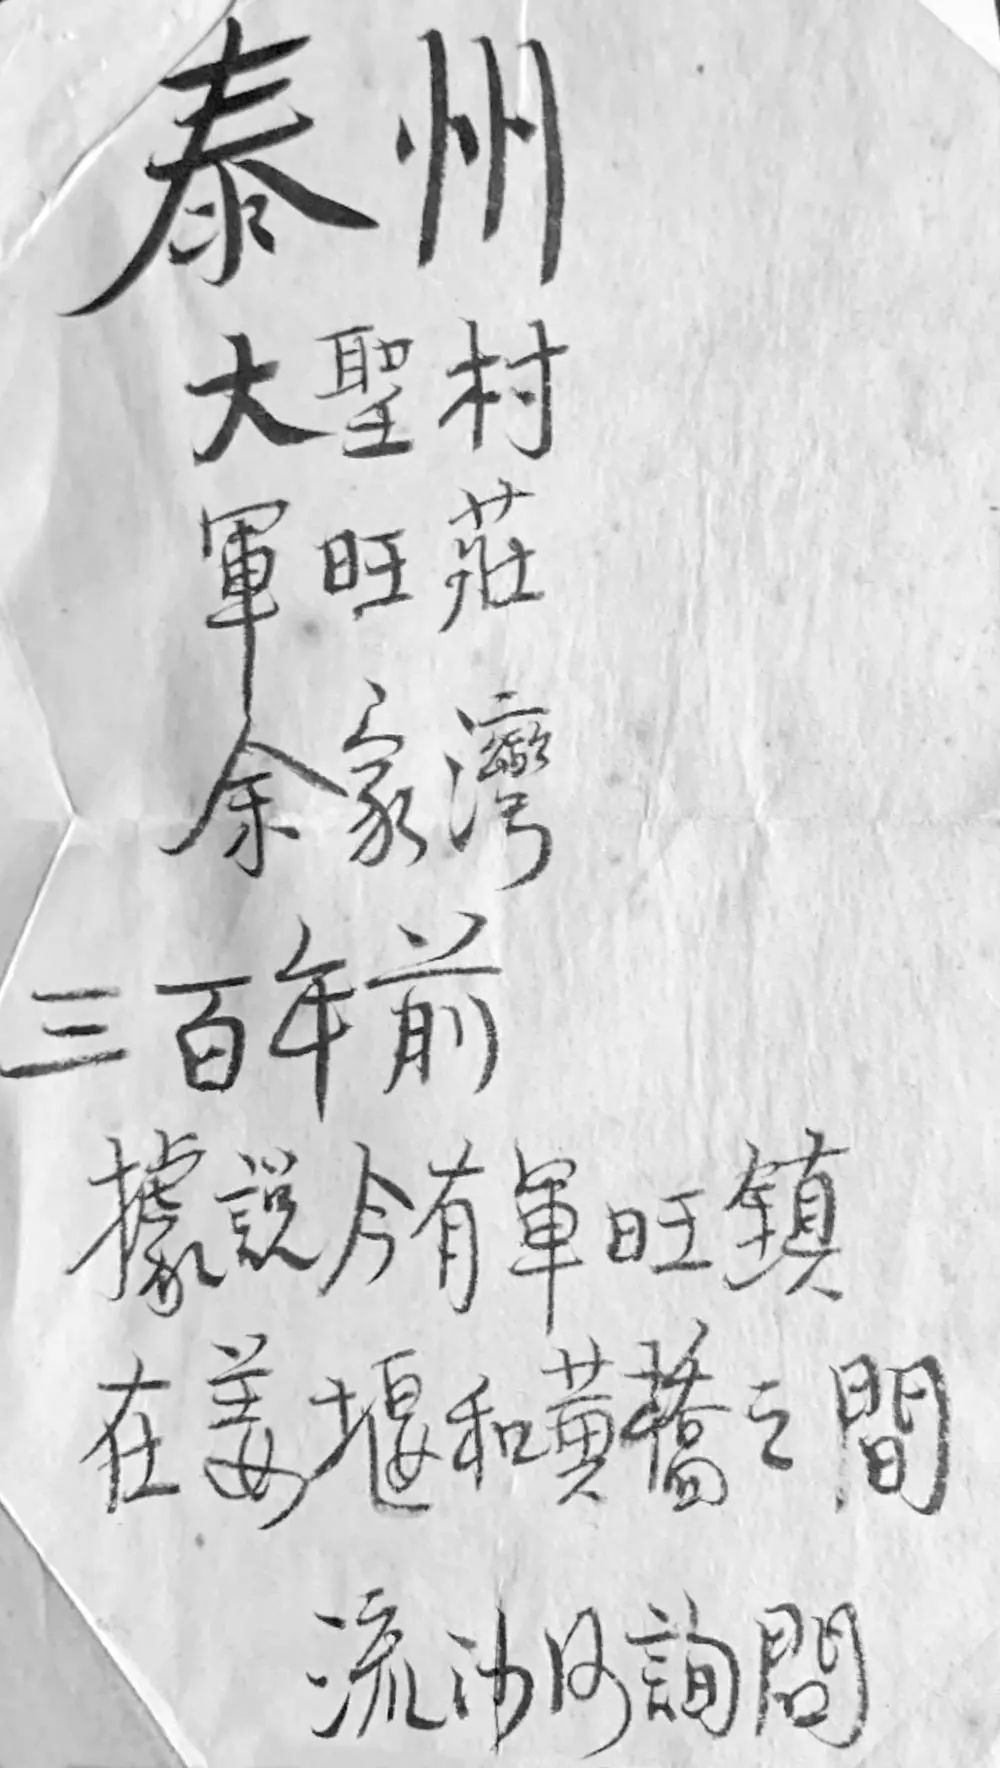 泰州
大聖村
軍旺莊
余家灣
三百年前
據説今有軍旺鎮
在姜堰和黄橋之間
流沙河詢問